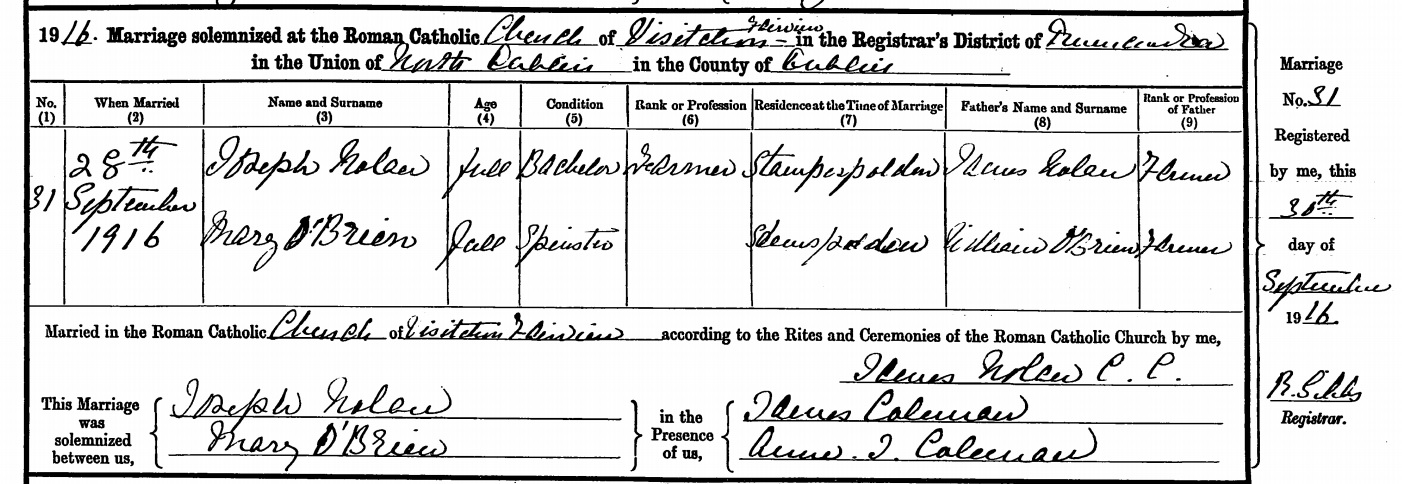 1916. Marriage solemnized at the Roman Catholic Church of Visitation Fairview in the Registrar's District of
in the Union of North Dublin in the County of Dublin
No. (1) When Married (2) Name and Surname (3) Age (4) Condition (5) Rank or Profession (6) Residence at the Time of Marriage (7) Father's Name and Surname (8) Rank or Profession of Father (9)
31 28th September 1916
Joseph Nolan full Bachelor Farmer James Nolan Farmer
Mary O'Brien full Spinster William O'Brien Farmer
Married in the Roman Catholic Church of Visitation Fairview according to the Rites and Ceremonies of the Roman Catholic Church by me,
James Nolan C. C.
This Marriage was solemnized between us,
Joseph Nolan
Mary O'Brien
in the Presence of us,
James Coleman
Anne. T. Coleman
Marriage
No. 31
Registered
by me, this
30th
day of
September
1916.
Registrar.